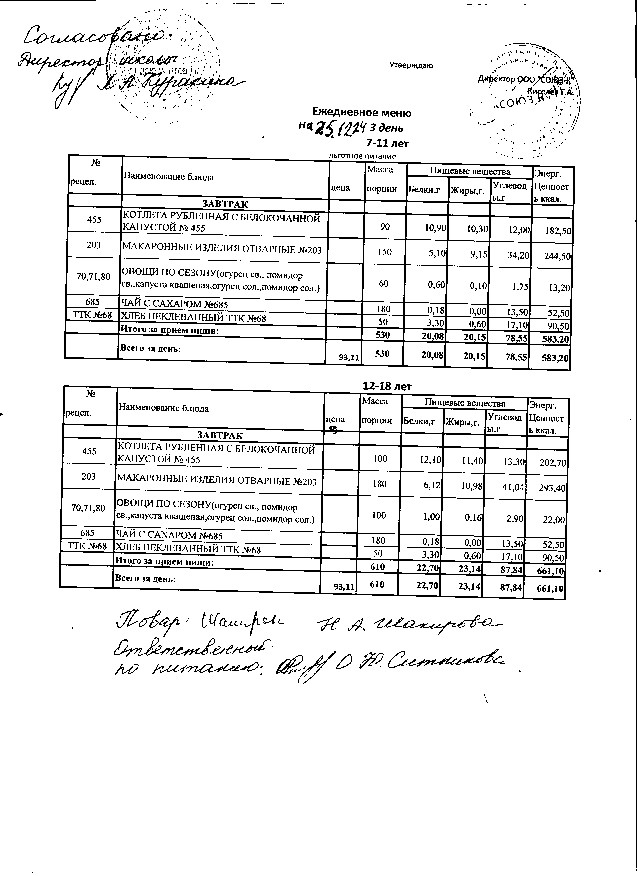 Согласовано:
Директор школы
Л А Куракина
Утверждаю
Директор ООО "СОЮЗ-Н"
"СОЮЗ Н"
Ежедневное меню
на 25.12.24 3 день
7-11 лет
льготное питание
№ рецеп. Наименование блюда цена Масса порции Пищевые вещества Энерг. Ценност ь ккал.
Белки,г Жиры,г. Углевод ы,г
ЗАВТРАК
455 КОТЛЕТА РУБЛЕННАЯ С БЕЛОКОЧАННОЙ КАПУСТОЙ № 455 90 10,90 10,30 12,00 182,50
203 МАКАРОННЫЕ ИЗДЕЛИЯ ОТВАРНЫЕ №203 150 5,10 9,15 34,20 244,50
70,71,80 ОВОЩИ ПО СЕЗОНУ(огурец св., помидор св.,капуста квашеная,огурец сол.,помидор сол.) 60 0,60 0,10 1,75 13,20
685 ЧАЙ С САХАРОМ №685 180 0,18 0,00 13,50 52,50
ТТК №68 ХЛЕБ ПЕКЛЕВАННЫЙ ТТК №68 50 3,30 0,60 17,10 90,50
Итого за прием пищи: 530 20,08 20,15 78,55 583,20
Всего за день: 93,11 530 20,08 20,15 78,55 583,20
12-18 лет
№ рецеп. Наименование блюда цена Масса порции Пищевые вещества Энерг. Ценност ь ккал.
Белки,г Жиры,г. Углевод ы,г
ЗАВТРАК
455 КОТЛЕТА РУБЛЕННАЯ С БЕЛОКОЧАННОЙ КАПУСТОЙ № 455 100 12,10 11,40 13,30 202,70
203 МАКАРОННЫЕ ИЗДЕЛИЯ ОТВАРНЫЕ №203 180 6,12 10,98 41,04 293,40
70,71,80 ОВОЩИ ПО СЕЗОНУ(огурец св., помидор св.,капуста квашеная,огурец сол.,помидор сол.) 100 1,00 0,16 2,90 22,00
685 ЧАЙ С САХАРОМ №685 180 0,18 0,00 13,50 52,50
ТТК №68 ХЛЕБ ПЕКЛЕВАННЫЙ ТТК №68 50 3,30 0,60 17,10 90,50
Итого за прием пищи: 610 22,70 23,14 87,84 661,10
Всего за день: 93,11 610 22,70 23,14 87,84 661,10
Повар: Шакиров Н А Шакирова
Ответственной
по питанию: О Ю. Ситникова